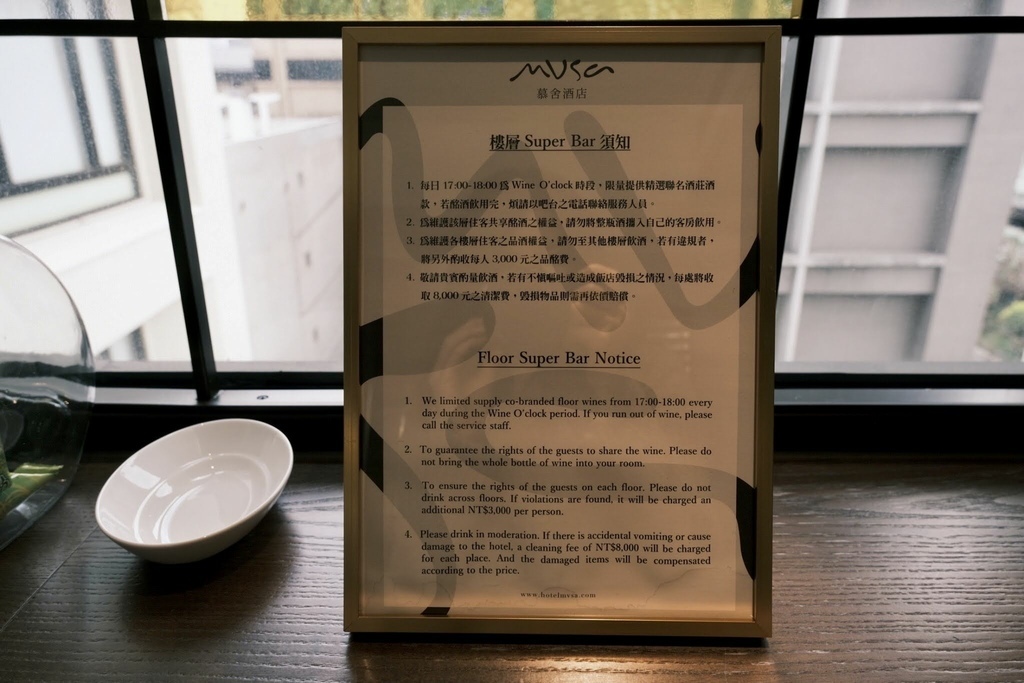 MVSA
慕舍酒店
樓層 Super Bar 須知
1. 每日 17:00-18:00 為 Wine O'clock 時段，限量提供精選聯名酒莊酒
款，若酩酒飲用完，煩請以吧台之電話聯絡服務人員。
2. 為維護該層住客共享酩酒之權益，請勿將整瓶酒攜入自己的客房飲用。
3. 為維護各樓層住客之品酒權益，請勿至其他樓層飲酒，若有違規者，
將另外酌收每人 3,000 元之品酩費。
4. 敬請貴賓酌量飲酒，若有不慎嘔吐或造成飯店毀損之情況，每處將收
取 8,000 元之清潔費，毀損物品則需再依價賠償。
Floor Super Bar Notice
1. We limited supply co-branded floor wines from 17:00-18:00 every
day during the Wine O'clock period. If you run out of wine, please
call the service staff.
2. To guarantee the rights of the guests to share the wine. Please do
not bring the whole bottle of wine into your room.
3. To ensure the rights of the guests on each floor. Please do not
drink across floors. If violations are found, it will be charged an
additional NT$3,000 per person.
4. Please drink in moderation. If there is accidental vomiting or cause
damage to the hotel, a cleaning fee of NT$8,000 will be charged
for each place. And the damaged items will be compensated
according to the price.
www.hotelmvsa.com